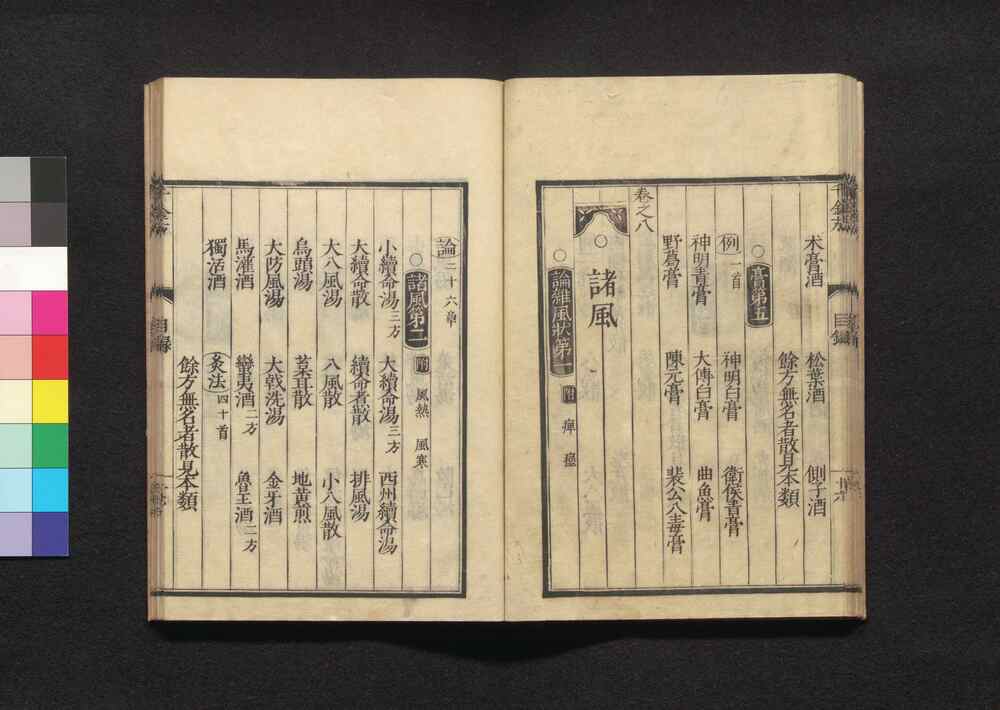 朮膏酒 松葉酒 側子酒
餘方無名者散見本類
○膏第五
例 一首
神明白膏 衛侯青膏
神明青膏 太傅白膏 曲魚膏
野葛膏 陳元膏 裴公八毒膏
卷之八
○諸風
○論雜風狀第一 附 痺 痙
論 二十六章
○諸風第二 附 風熱 風寒
小續命湯三方 大續命湯三方 西州續命湯
大續命散 續命煮散 排風湯
大八風湯 八風散 小八風散
烏頭湯 菜耳散 地黃煎
大防風湯 大戟洗湯 金牙酒
馬灌酒 蠻夷酒二方 魯王酒二方
獨活酒 灸法 四十首
餘方無名者散見本類
千金方
目錄